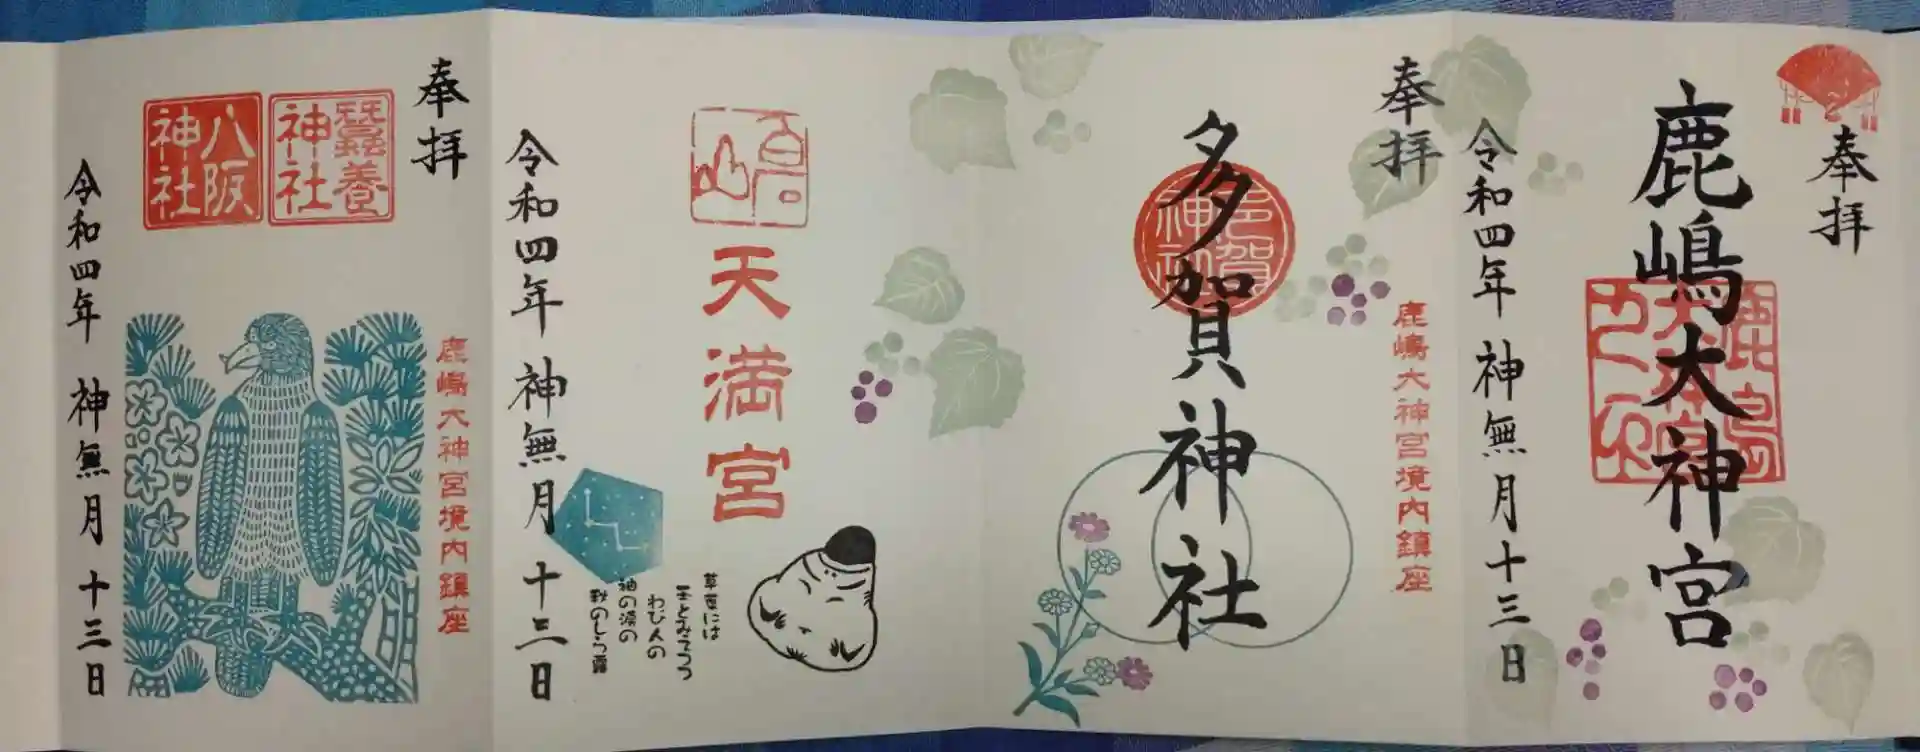 奉拝
鹿嶋大神宮
令和四年 神無月 十三日
奉拝
鹿嶋大神宮境内鎮座
多賀神社
天満宮
草葉には
玉とみえつつ
わび人の
袖の涙の
秋のしら露
令和四年 神無月 十三日
奉拝
鹿嶋大神宮境内鎮座
蠶養
神社
八阪
神社
令和四年 神無月 十三日